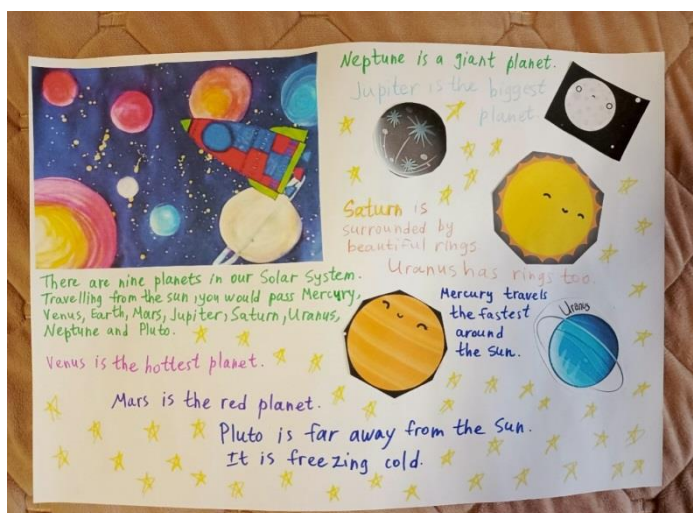 Neptune is a giant planet.
Jupiter is the biggest
planet.
Saturn is
surrounded by
beautiful rings
Uranus has rings too.
There are nine planets in our Solar System.
Travelling from the sun, you would pass Mercury,
Venus, Earth, Mars, Jupiter, Saturn, Uranus,
Neptune and Pluto.
Mercury travels
the fastest
around
the Sun.
Uranus
Venus is the hottest planet.
Mars is the red planet.
Pluto is far away from the Sun.
It is freezing cold.